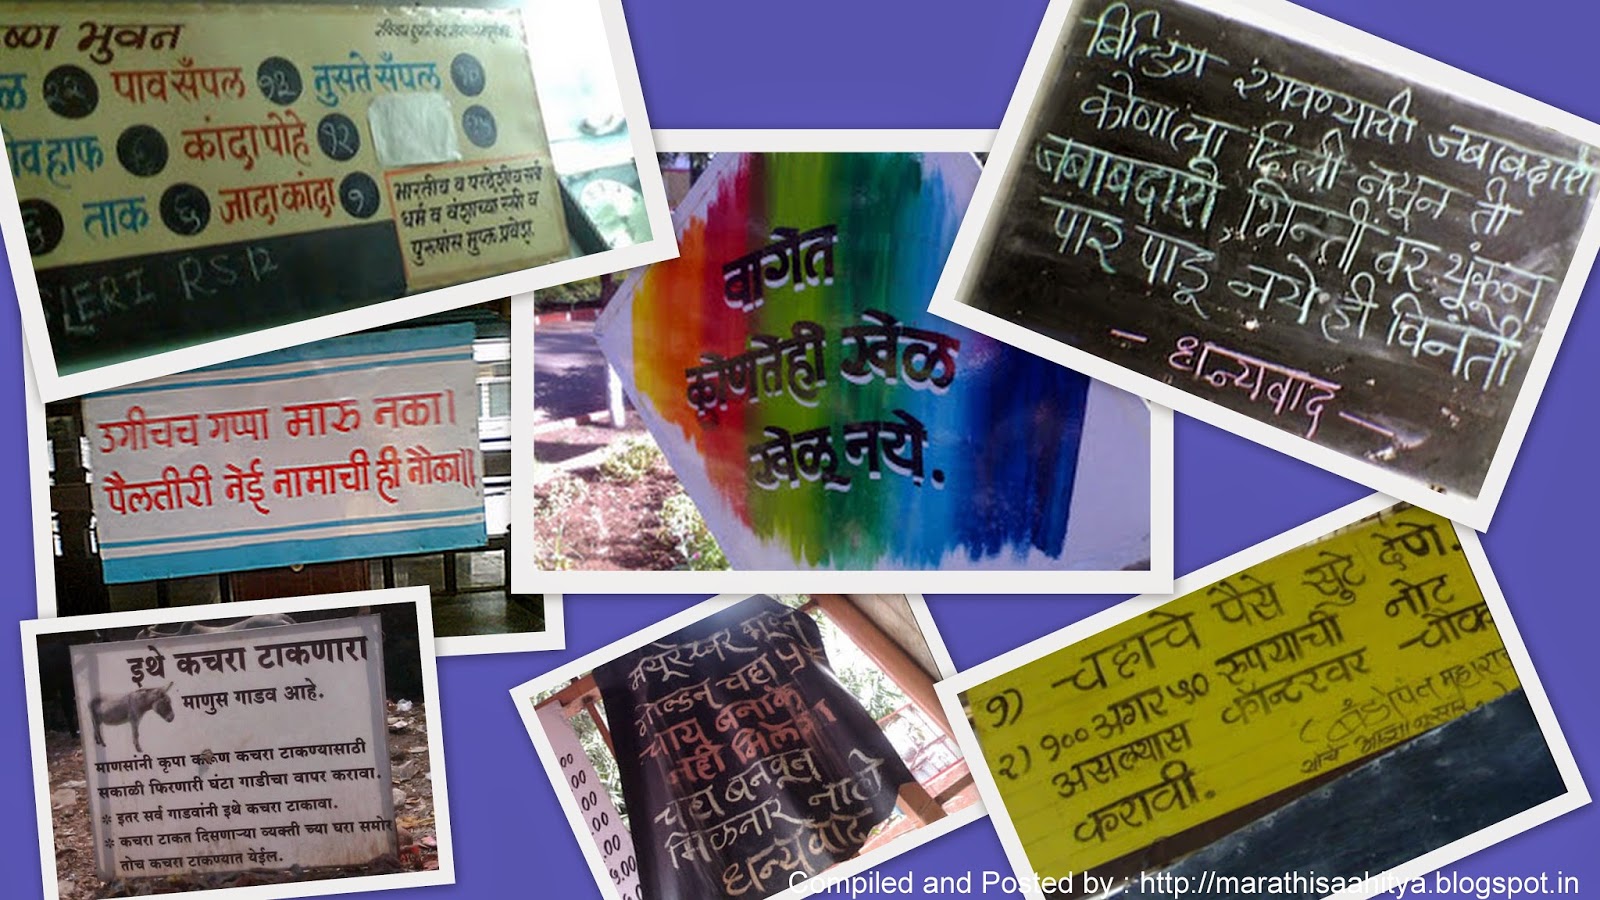 ष्ण भुवन
ळ २२ पाव सँपल १२ नुसते सँपल १०
हाफ ६ कांदा पोहे १२
६ ताक ६ जादा कांदा १
भारतीय व परदेशीय सर्व
धर्म व वंशाच्या स्त्री व
पुरुषांस मुफ्त प्रवेश.
RS 12
बागेत
कोणतेही खेळ
खेळू नये.
बिल्डिंग रंगवण्याची जबाबदारी
कोणाला दिली नसून ती
जबाबदारी भिन्तींवर थूंकून
पार पाडू नये ही विनंती
- धन्यवाद -
उगीचच गप्पा मारु नका।
पैलतीरी नेई नामाची ही नौका॥
इथे कचरा टाकणारा
माणुस गाडव आहे.
माणसांनी कृपा करूण कचरा टाकण्यासाठी
सकाळी फिरणारी घंटा गाडीचा वापर करावा.
* इतर सर्व गाडवांनी इथे कचरा टाकावा.
* कचरा टाकत दिसणाऱ्या व्यक्ती च्या घरा समोर
तोच कचरा टाकण्यात येईल.
मयूरेश्वर
गोल्डन चहा ५
चाय बनाके
नही मिलेगा
चहा बनवून
मिळनार नाही
धन्यवाद
१) चहाचे पैसे सुटे देणे.
२) १०० अगर ५० रुपयाची नोट
असल्यास कॉन्टरवर चौक
करावी.
Compiled and Posted by : http://marathisaahitya.blogspot.in